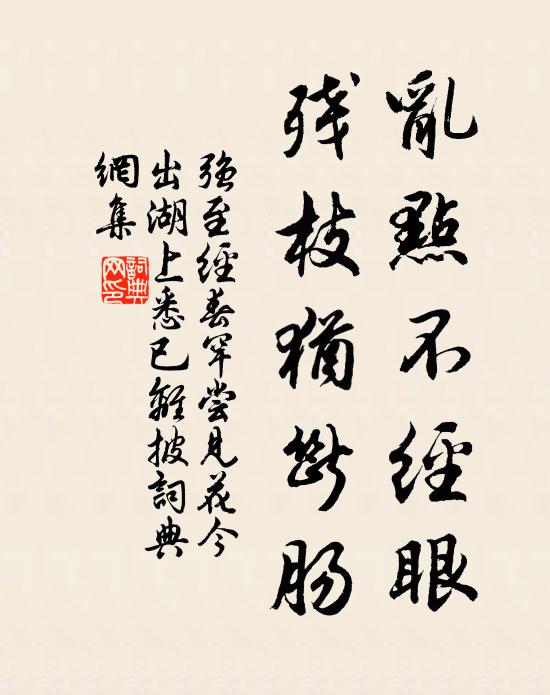 亂點不經眼
残枝猶斷肠
强至經春罕嘗見花今
出湖上悉已離披詞典
網集
詞典網印